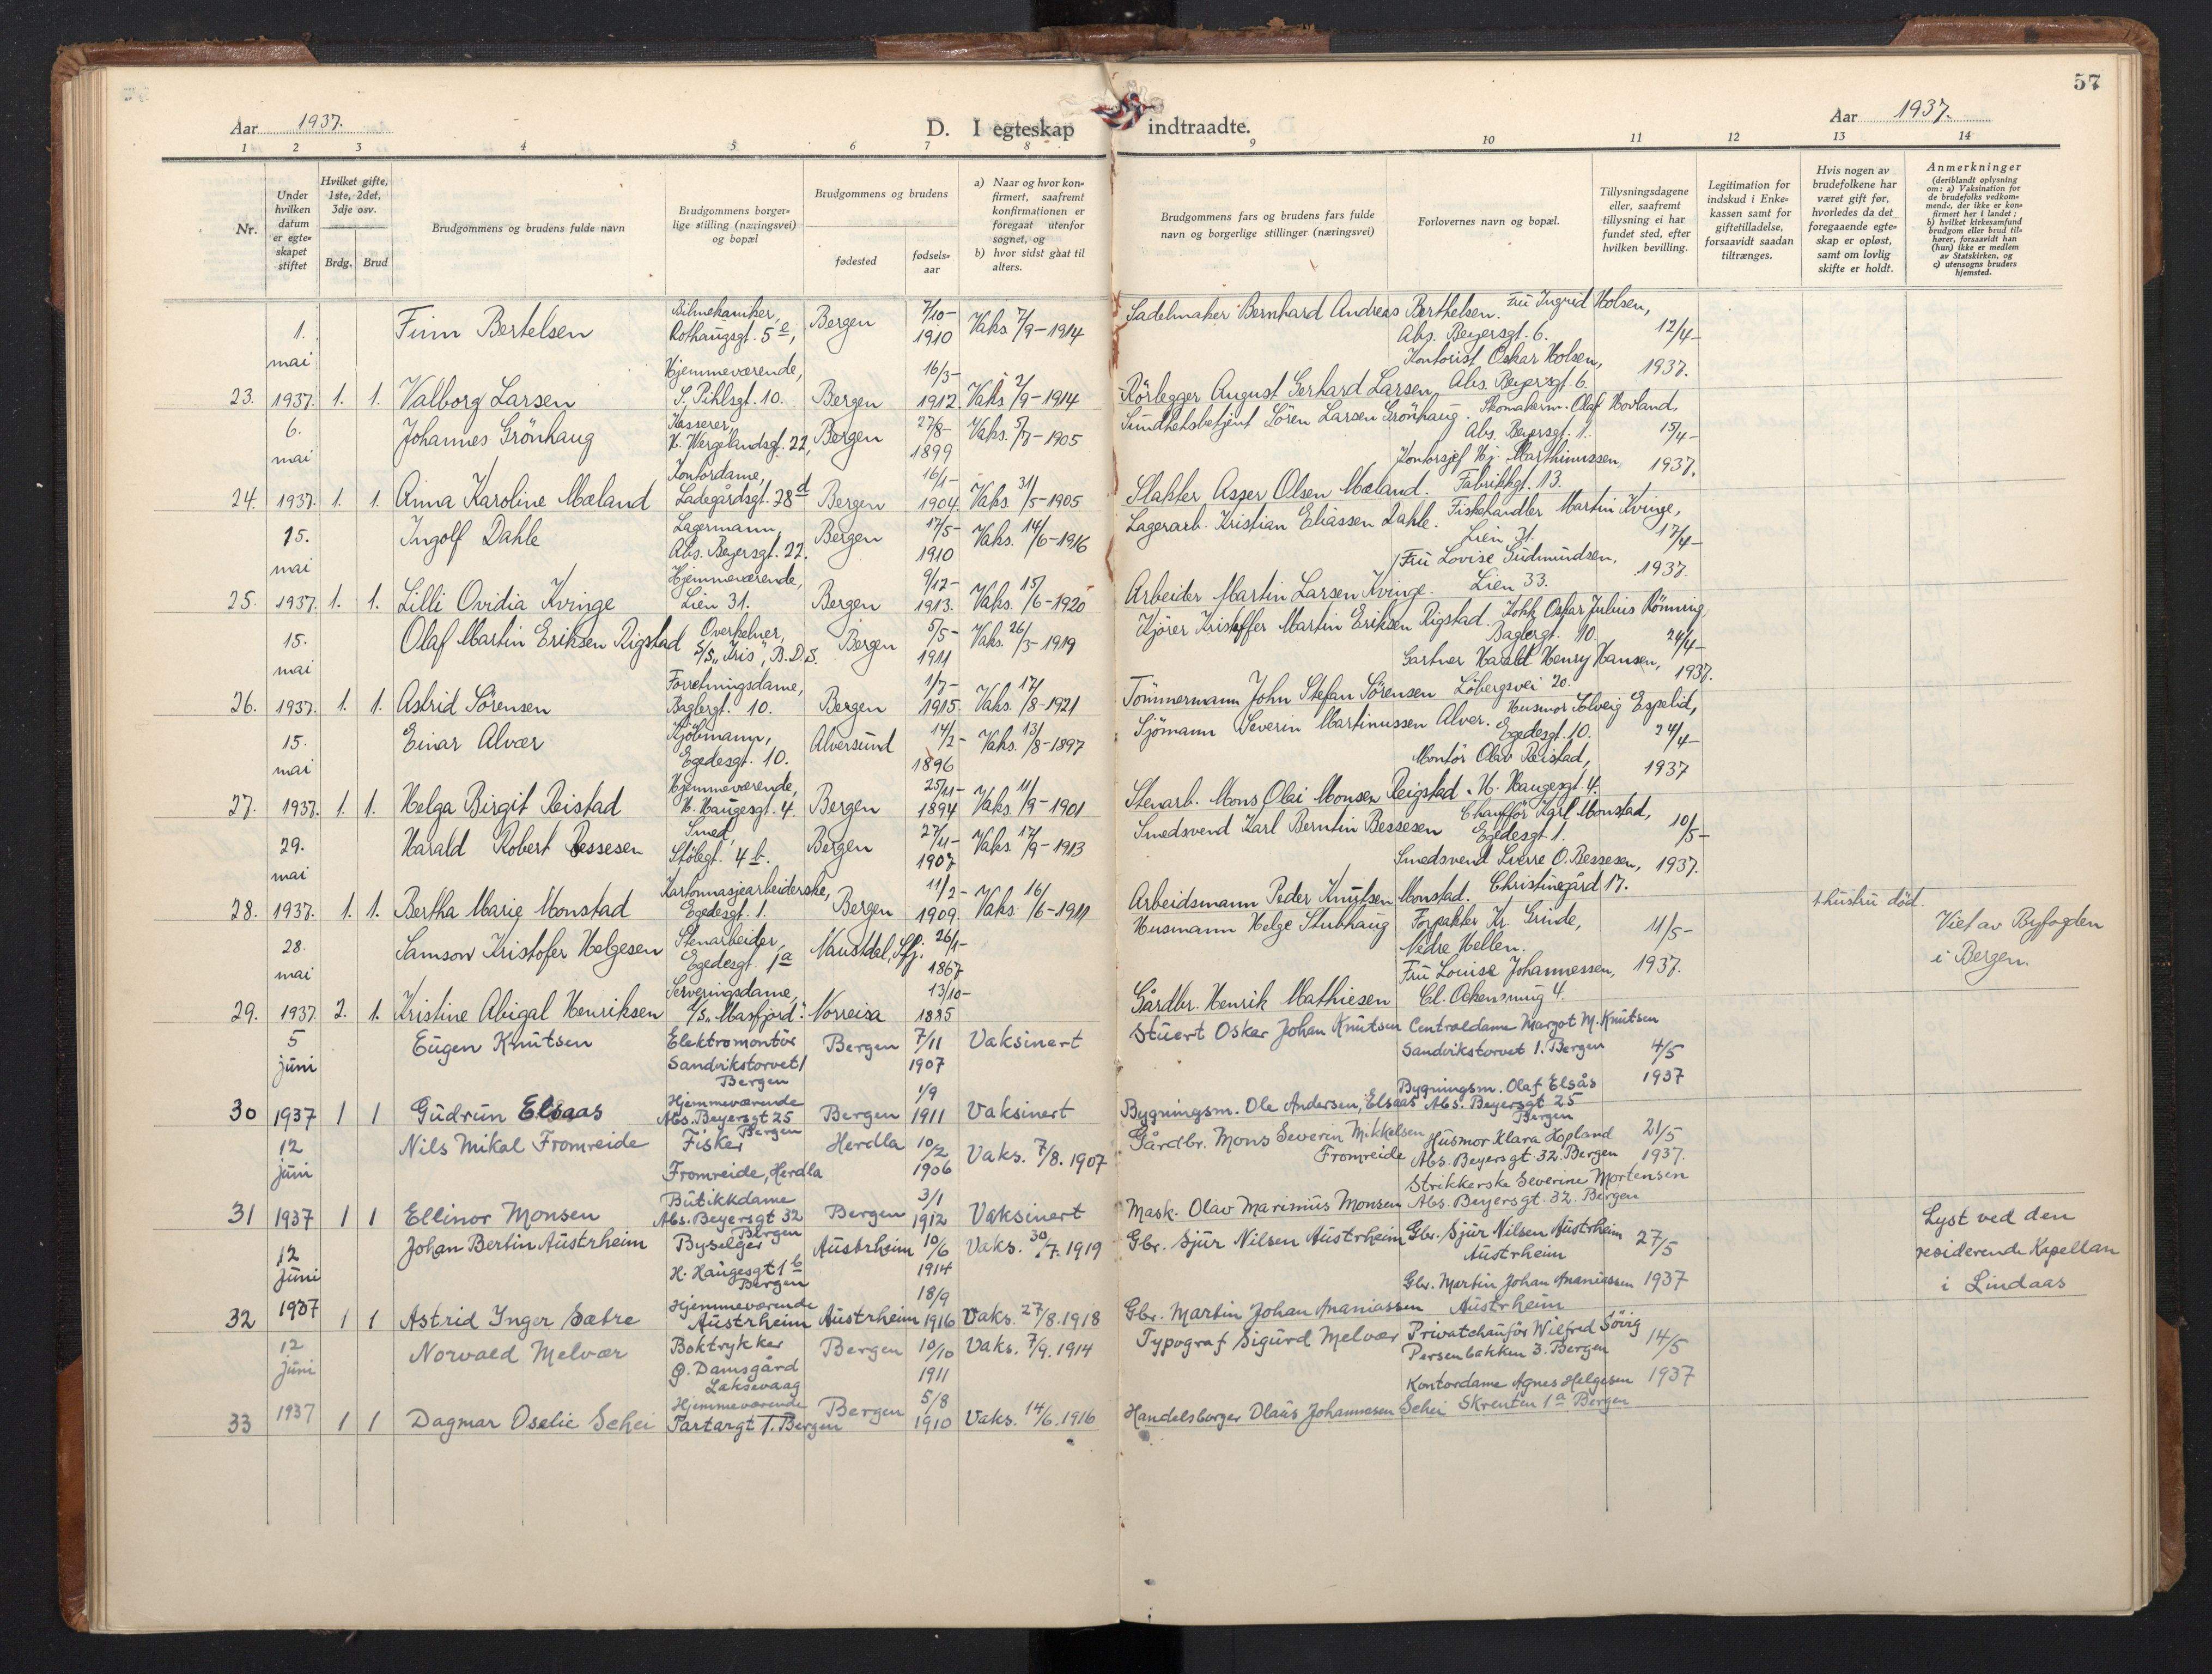 57
Aar 1937.
D. I egteskap indtraadte.
Aar 1937.
1 2 3 4 5 6 7 8 9 10 11 12 13 14
Nr.
Under hvilken datum er egteskapet stiftet
Hvilket gifte, 1ste, 2det, 3dje osv.
Brdg. Brud
Brudgommens og brudens fulde navn
Brudgommens borgerlige stilling (næringsvei) og bopæl
Brudgommens og brudens
fødested
fødselsaar
a) Naar og hvor konfirmert, saafremt konfirmationen er foregaat utenfor sognet, og
b) hvor sidst gaat til alters.
Brudgommens fars og brudens fars fulde navn og borgerlige stillinger (næringsvei)
Forlovernes navn og bopæl.
Tillysningsdagene eller, saafremt tillysning ei har fundet sted, efter hvilken bevilling.
Legitimation for indskud i Enkekassen samt for giftetilladelse, forsaavidt saadan tiltrænges.
Hvis nogen av brudefolkene har været gift før, hvorledes da det foregaaende egteskap er opløst, samt om lovlig skifte er holdt.
Anmerkninger
(deriblandt oplysning om: a) Vaksination for de brudefolks vedkommende, der ikke er konfirmert her i landet; b) hvilket kirkesamfund brudgom eller brud tilhører, forsaavidt han (hun) ikke er medlem av Statskirken, og c) utensogns bruders hjemsted.
1. mai Finn Bertelsen Bilmekaniker, Rothaugsgt. 5 e, Bergen 7/10-1910 Vaks. 7/9-1914 Sadelmaker Bernhard Andreas Berthelsen. Fru Ingrid Holsen, Abs. Beyersgt. 6. 12/4-
23. 1937. 1. 1. Valborg Larsen Hjemmeværende, S. Pihlsgt. 10. Bergen 16/3-1912. Vaks. 2/9-1914 Rörlegger August Gerhard Larsen. Kontorist Oskar Holsen, Abs. Beyersgt. 6. 1937.
6. mai Johannes Grönhaug Kasserer, H. Wergelandsgt. 22, Bergen 27/8-1899 Vaks. 5/7-1905 Sundhetsbetjent Sören Larsen Grönhaug. Skomakerm. Olaf Hovland, Abs. Beyersgt. 1. 15/4-
24. 1937. 1. 1. Anna Karoline Mæland Kontordame, Ladegårdsgt. 28 d Bergen 16/1-1904. Vaks. 31/5-1905 Slakter Asser Olsen Mæland. Kontorsjef Hj. Marthinussen, Fabrikkgt. 13. 1937.
15. mai Ingolf Dahle Lagermann, Abs. Beyersgt. 22. Bergen 17/5-1910 Vaks. 14/6-1916 Lagerarb. Kristian Eliassen Dahle. Fiskehandler Martin Kvinge, Lien 31. 17/4-
25. 1937. 1. 1. Lilli Ovidia Kvinge Hjemmeværende, Lien 31. Bergen 9/12-1913. Vaks. 15/6-1920 Arbeider Martin Larsen Kvinge. Fru Lovise Gudmundsen, Lien 33. 1937.
15. mai Olaf Martin Eriksen Rigstad Overkelner, S/S „Kris“, B.D.S. Bergen 5/5-1911 Vaks. 26/3-1919 Kjörer Kristoffer Martin Eriksen Rigstad. Kokk Oskar Julius Rönning, Baglergt. 10. 24/4-
26. 1937. 1. 1. Astrid Sörensen Forretningsdame, Baglergt. 10. Bergen 1/7-1915. Vaks. 17/8-1921 Tömmermann John Stefan Sörensen Gartner Harald Henry Hansen, Löbergsvei 20. 1937.
15. mai Einar Alvær Kjölmann, Egedesgt. 10. Alversund 14/2-1896 Vaks. 13/8-1897 Sjömann Severin Martinussen Alver. Husmor Solveig Espelid, Egedesgt. 10. 24/4-
27. 1937. 1. 1. Helga Birgit Reistad Hjemmeværende, H. Haugesgt. 4. Bergen 25/11-1894 Vaks. 11/9-1901 Stenarb. Mons Olai Monsen Reigstad. Montör Olav Reistad, H. Haugesgt. 4. 1937
29. mai Harald Robert Bessesen Smed, Stölegt. 4 b. Bergen 27/11-1907 Vaks. 17/9-1913 Smedsvend Karl Berntin Bessesen Chaufför Karl Monstad, Egedesgt. 1. 10/5-
28. 1937. 1. 1. Bertha Marie Monstad Kartonnasjearbeiderske, Egedesgt. 1. Bergen 11/2-1909. Vaks. 16/6-1911 Arbeidsmann Peder Knutsen Monstad. Smedsvend Sverre O. Bessesen, Christinegård 17. 1937.
28. mai Samson Kristofer Helgesen Stenarbeider, Egedesgt. 1 a Naustdal, Sfj. 26/1-1867 Husmann Helge Stubhaug Forpakter Kr. Grinde, Nedre Hellen. 11/5- 1 hustru död. Viet av Byfogden i Bergen.
29. 1937. 2. 1. Kristine Abigal Henriksen Serveringsdame, S/S „Masfjord“. Norreisa 13/10-1885 Gårdbr. Henrik Mathiesen Fru Louise Johannessen, Cl. Ockensmug 4. 1937.
5 juni Eugen Knutsen Elektromontör Sandvikstorvet 1 Bergen Bergen 7/11 1907 Vaksinert Stuert Oskar Johan Knutsen Centraldame Margot M. Knutsen Sandvikstorvet 1. Bergen 4/5
30 1937 1 1 Gudrun Elsaas Hjemmeværende Abs. Beyersgt 25 Bergen Bergen 1/9 1911 Vaksinert Bygningsm. Ole Andersen, Elsaas Bygningsm. Olaf Elsås Abs. Beyersgt 25 Bergen 1937
12 juni Nils Mikal Fromreide Fisker Fromreide, Herdla Herdla 10/2 1906 Vaks. 7/8. 1907 Gårdbr. Mons Severin Mikkelsen Fromreide Husmor Klara Hopland Abs. Beyersgt. 32. Bergen 21/5 1937.
31 1937 1 1 Ellinor Monsen Butikkdame Abs. Beyersgt 32 Bergen Bergen 3/1 1912 Vaksinert Mask. Olav Marinius Monsen Strikkerske Severine Mortensen Abs. Beyersgt. 32. Bergen
12 juni Johan Bertin Austrheim Byselger H. Haugesgt 1 b Bergen Austrheim 10/6 1914 Vaks. 30/7. 1919 Gbr. Sjur Nilsen Austrheim Gbr. Sjur Nilsen Austrheim Austrheim 27/5 Lyst ved den residerende Kapellan i Lindaas
32 1937 1 1 Astrid Inger Sætre Hjemmeværende Austrheim Austrheim 18/9 1916 Vaks. 27/8. 1918 Gbr. Martin Johan Ananiassen Gbr. Martin Johan Ananiassen Austrheim 1937
12 juni Norvald Melvær Boktrykker Ø. Damsgård Laksevaag Bergen 10/10 1911 Vaks. 7/9. 1914 Typograf Sigurd Melvær Privatchaufför Wilfred Sövig Persenbakken 3. Bergen 14/5
33 1937 1 1 Dagmar Oselie Schei Hjemmeværende Tartargt 1. Bergen Bergen 5/8 1910 Vaks. 14/6. 1916 Handelsborger Olaus Johannesen Schei Kontordame Agnes Helgesen Skrenten 1 a Bergen 1937